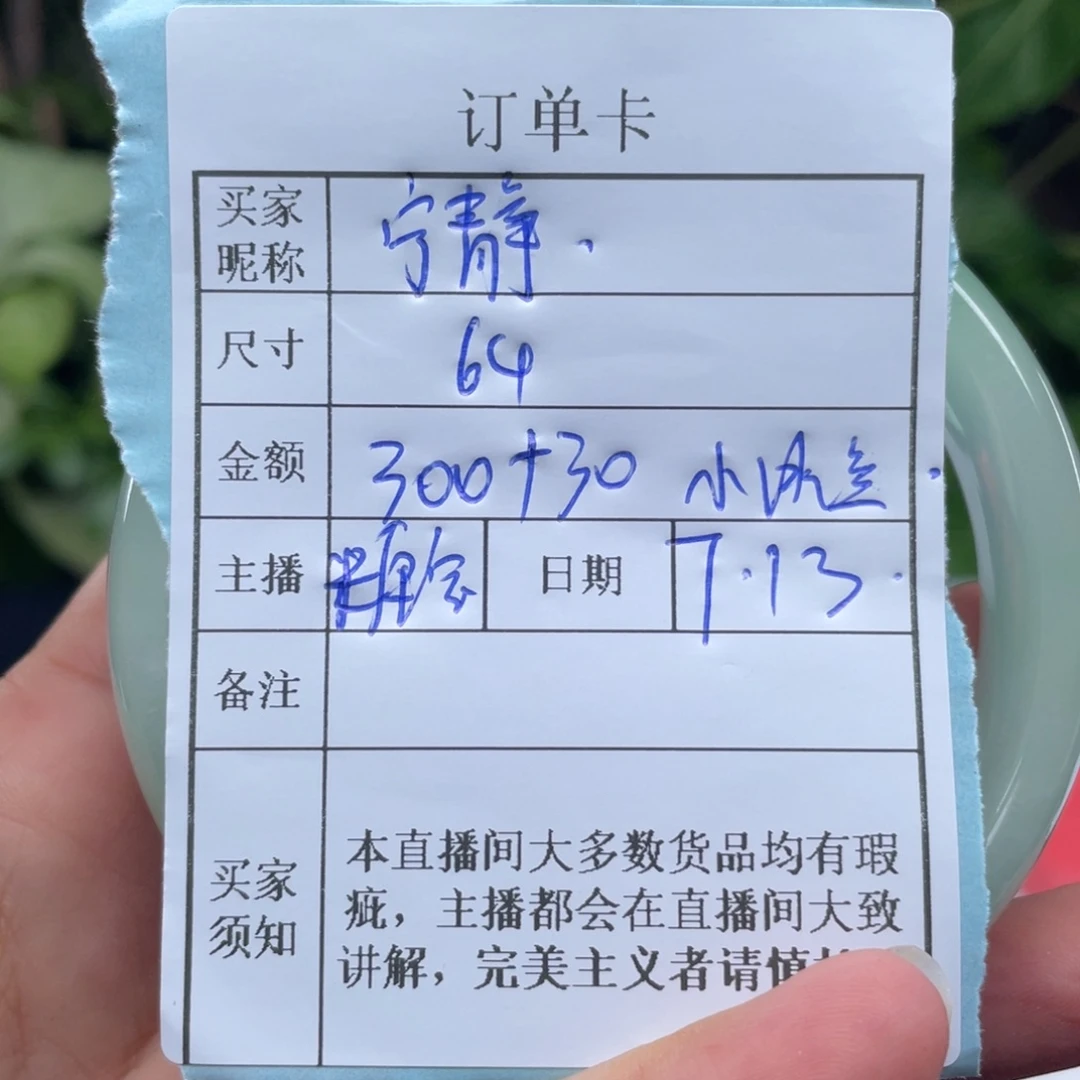 订单卡
买家
昵称
宁静.
尺寸
64
金额
300+30
主播
日期
7.13.
备注
买家
须知
本直播间大多数货品均有瑕
疵，主播都会在直播间大致
讲解，完美主义者请慎